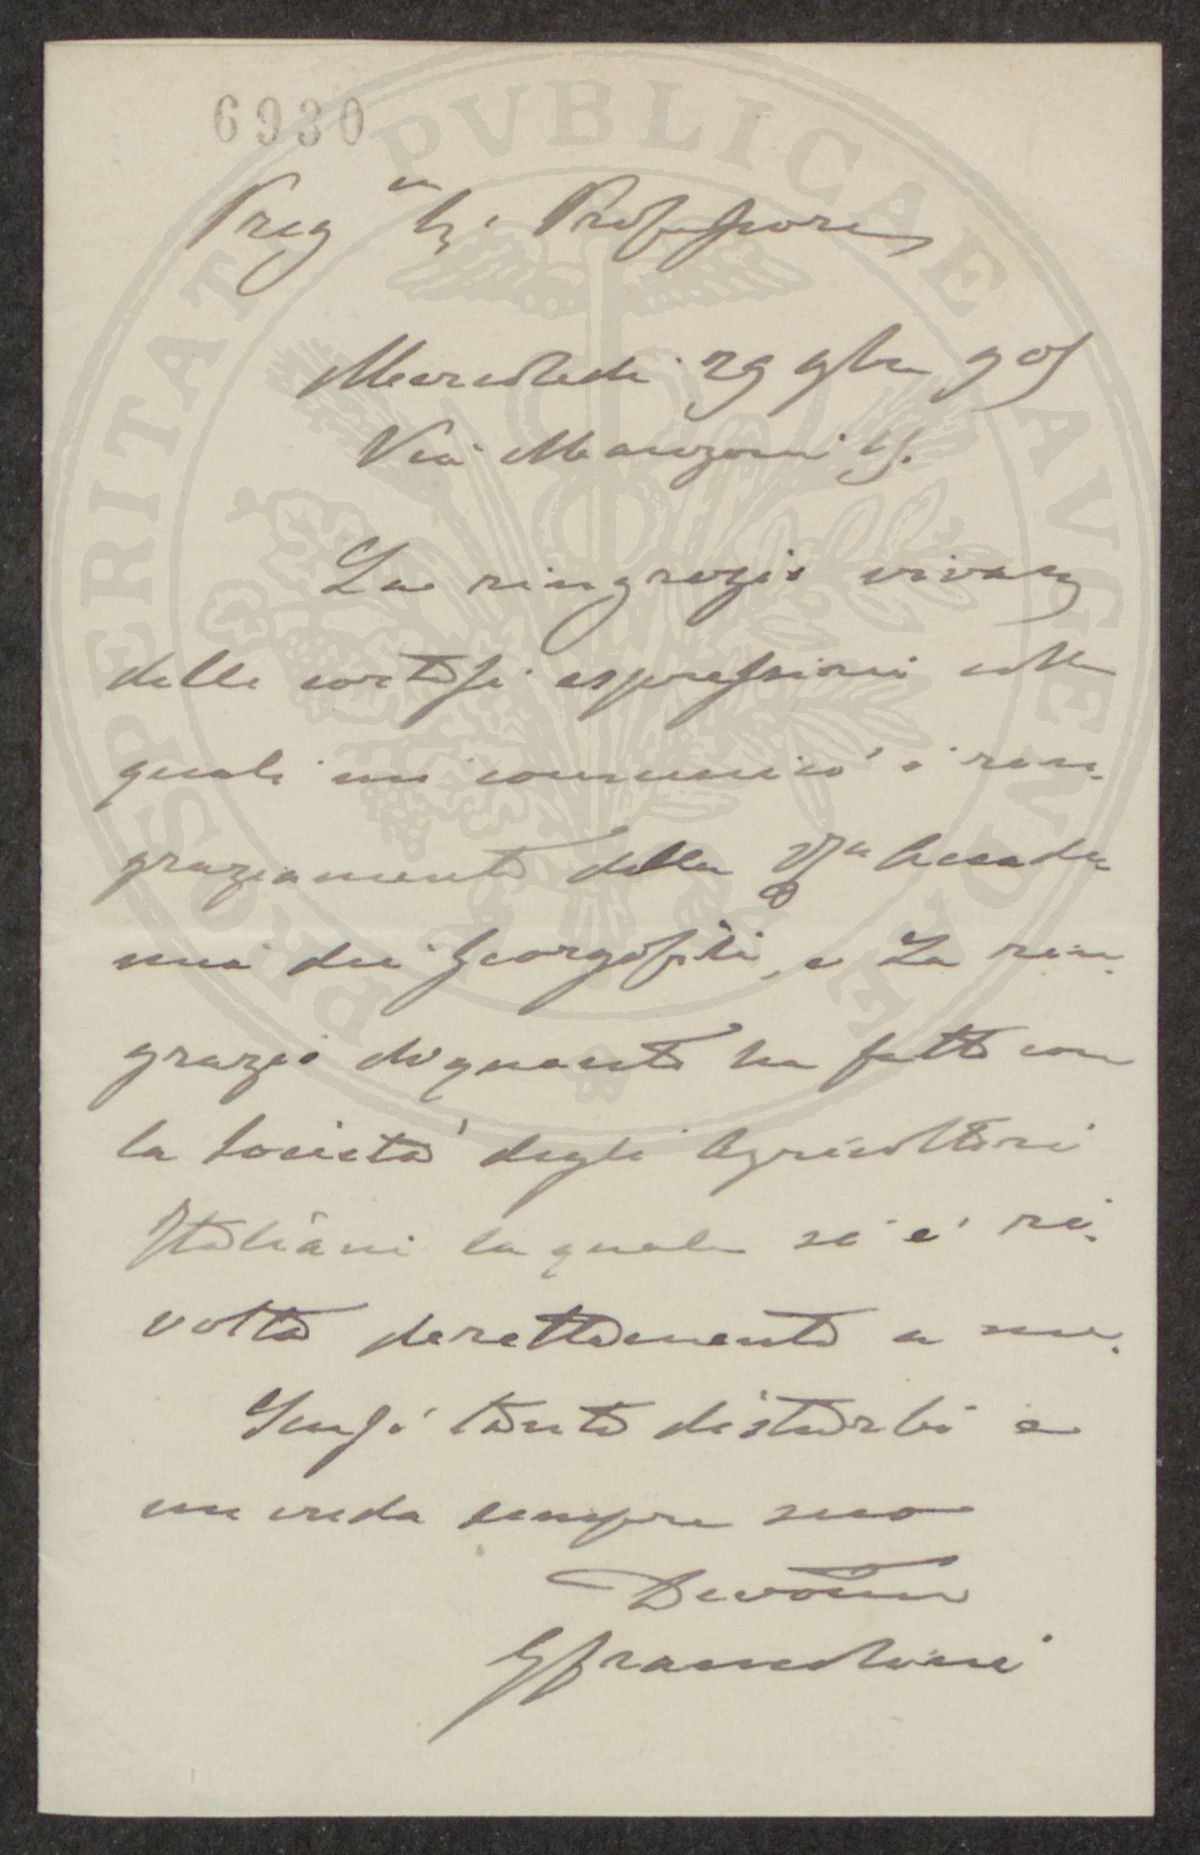 6930
Preg mo Sr Professore
Mercoledì 29 9bre 905
Via Manzoni
La ringrazio vivam
delle cortesi espressioni colle
quali mi comunicò i rin-
graziamenti della Rª Accade-
mia dei Georgofili, e La rin-
grazio di quanto ha fatto con
la Società degli Agricoltori
Italiani la quale si è ri-
volta direttamente a me.
Scusi tanto disturbi e
mi creda sempre suo
Devotmo
GFrancolini
PROSPERITATI PVBLICAE AVGENDAE